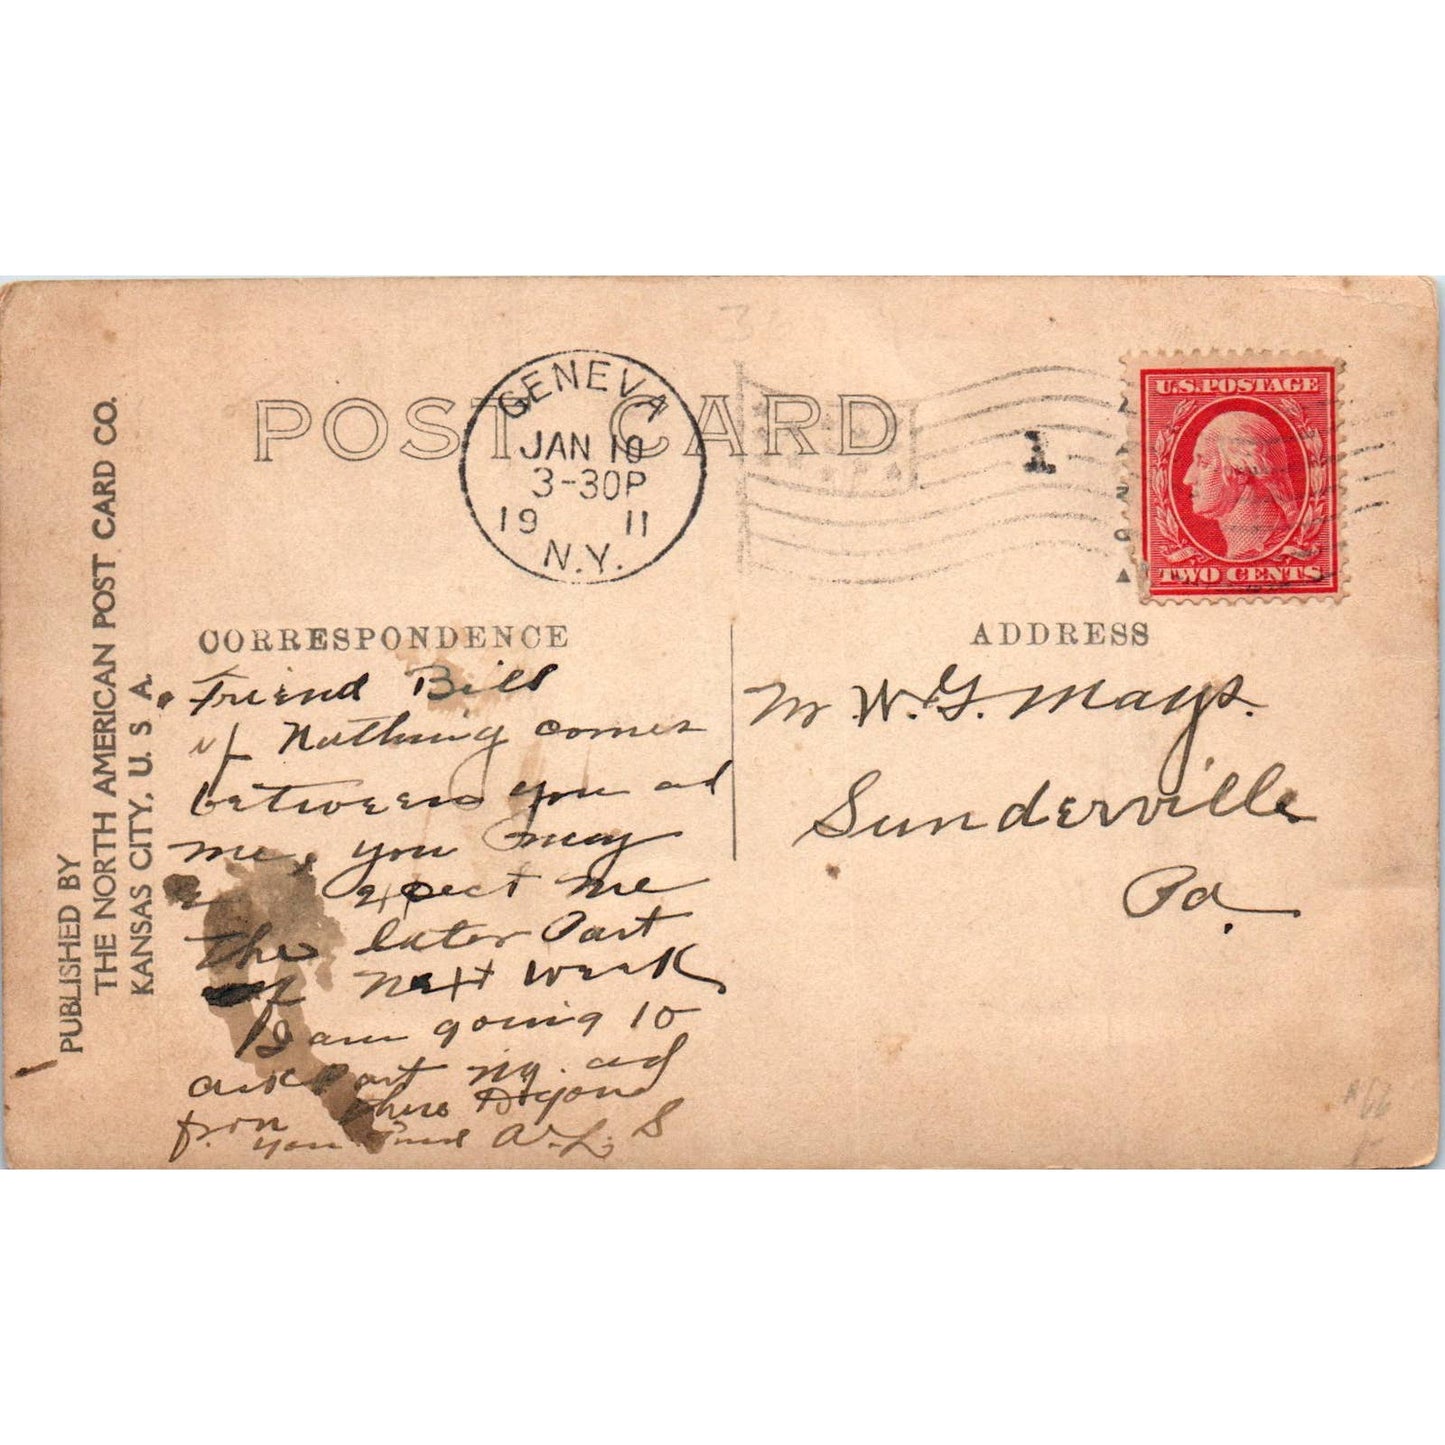 POST CARD
GENEVA
JAN 10
3-30P
19 11
N.Y.
1
U.S. POSTAGE
TWO CENTS
PUBLISHED BY
THE NORTH AMERICAN POST CARD CO.
KANSAS CITY, U. S. A.
CORRESPONDENCE
Friend Bill
if Nothing comes
between you ad
me, you may
expect me
the later Part
of next week
I am going to
Port ny. ad
from there
you Friend A. L. S
ADDRESS
Mr W. G. Mays.
Sunderville
Pa.